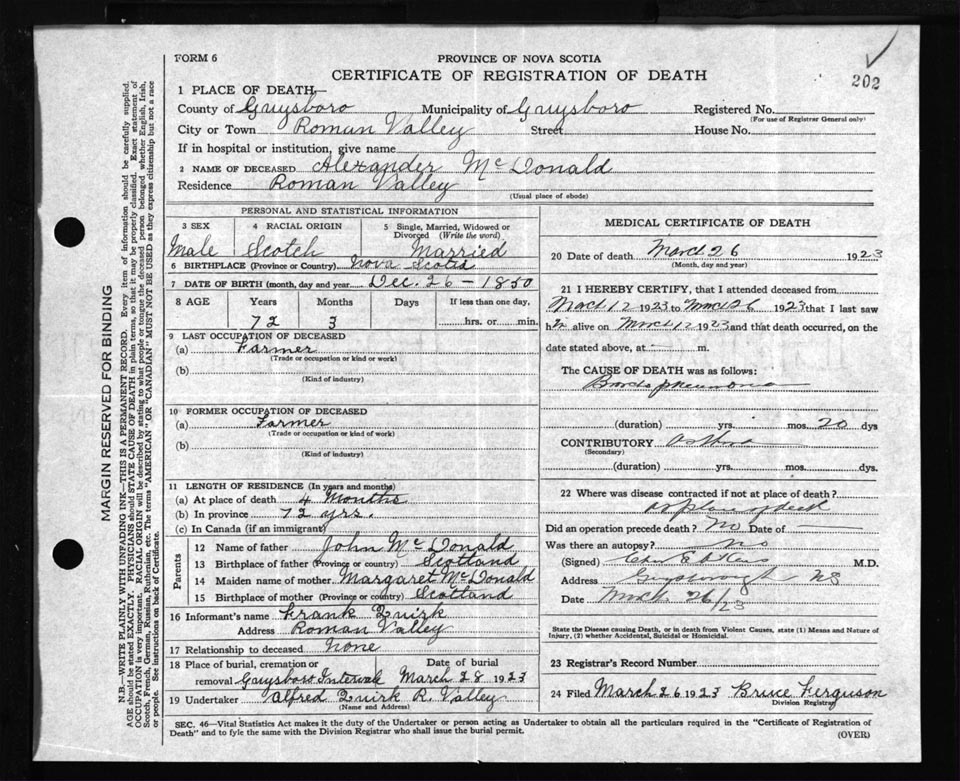 FORM 6
PROVINCE OF NOVA SCOTIA
CERTIFICATE OF REGISTRATION OF DEATH
202
1 PLACE OF DEATH—
County of Guysboro Municipality of Guysboro Registered No.
(For use of Registrar General only)
City or Town Roman Valley Street House No.
If in hospital or institution, give name
2 NAME OF DECEASED Alexander McDonald
Residence Roman Valley
(Usual place of abode)
PERSONAL AND STATISTICAL INFORMATION
3 SEX 4 RACIAL ORIGIN 5 Single, Married, Widowed or Divorced (Write the word)
Male Scotch Married
6 BIRTHPLACE (Province or Country) Nova Scotia
7 DATE OF BIRTH (month, day and year) Dec. 26 - 1850
8 AGE Years Months Days If less than one day,
72 3 hrs. or min.
9 LAST OCCUPATION OF DECEASED
(a) Farmer
(Trade or occupation or kind or work)
(b)
(Kind of industry)
10 FORMER OCCUPATION OF DECEASED
(a) Farmer
(Trade or occupation or kind of work)
(b)
(Kind of industry)
11 LENGTH OF RESIDENCE (In years and months)
(a) At place of death 4 Months
(b) In province 72 yrs.
(c) In Canada (if an immigrant)
Parents
12 Name of father John McDonald
13 Birthplace of father (Province or country) Scotland
14 Maiden name of mother Margaret McDonald
15 Birthplace of mother (Province or country) Scotland
16 Informant's name Frank Quirk
Address Roman Valley
17 Relationship to deceased None
18 Place of burial, cremation or removal Guysboro Interval Date of burial March 28 1923
19 Undertaker Alfred Quirk R. Valley
(Name and Address)
MEDICAL CERTIFICATE OF DEATH
20 Date of death March 26 1923
(Month, day and year)
21 I HEREBY CERTIFY, that I attended deceased from
March 12 1923 to March 26 1923 that I last saw
him alive on March 12 1923 and that death occurred, on the
date stated above, at — m.
The CAUSE OF DEATH was as follows:
Broncho pneumonia
(duration) yrs. mos. 20 dys
CONTRIBUTORY Asthma
(Secondary)
(duration) yrs. mos. dys.
22 Where was disease contracted if not at place of death?
at place of death
Did an operation precede death? No Date of
Was there an autopsy? No
(Signed) M.D.
Address Guysborough NS
Date March 26/23
State the Disease causing Death, or in death from Violent Causes, state (1) Means and Nature of
Injury, (2) whether Accidental, Suicidal or Homicidal.
23 Registrar's Record Number
24 Filed March 26 1923 Bruce Ferguson
Division Registrar
SEC. 46—Vital Statistics Act makes it the duty of the Undertaker or person acting as Undertaker to obtain all the particulars required in the "Certificate of Registration of
Death" and to fyle the same with the Division Registrar who shall issue the burial permit.
(OVER)
MARGIN RESERVED FOR BINDING
N.B.—WRITE PLAINLY WITH UNFADING INK—THIS IS A PERMANENT RECORD. Every item of information should be carefully supplied.
AGE should be stated EXACTLY. PHYSICIANS should STATE CAUSE OF DEATH in plain terms, so that it may be properly classified. Exact statement of
OCCUPATION is very important. RACIAL ORIGIN will be described by stating to what people or tongue the deceased person belonged whether English, Irish,
Scotch, French, German, Russian, Ruthenian, etc. The terms "AMERICAN" OR "CANADIAN" MUST NOT BE USED as they express citizenship but not a race
or people. See instructions on back of Certificate.